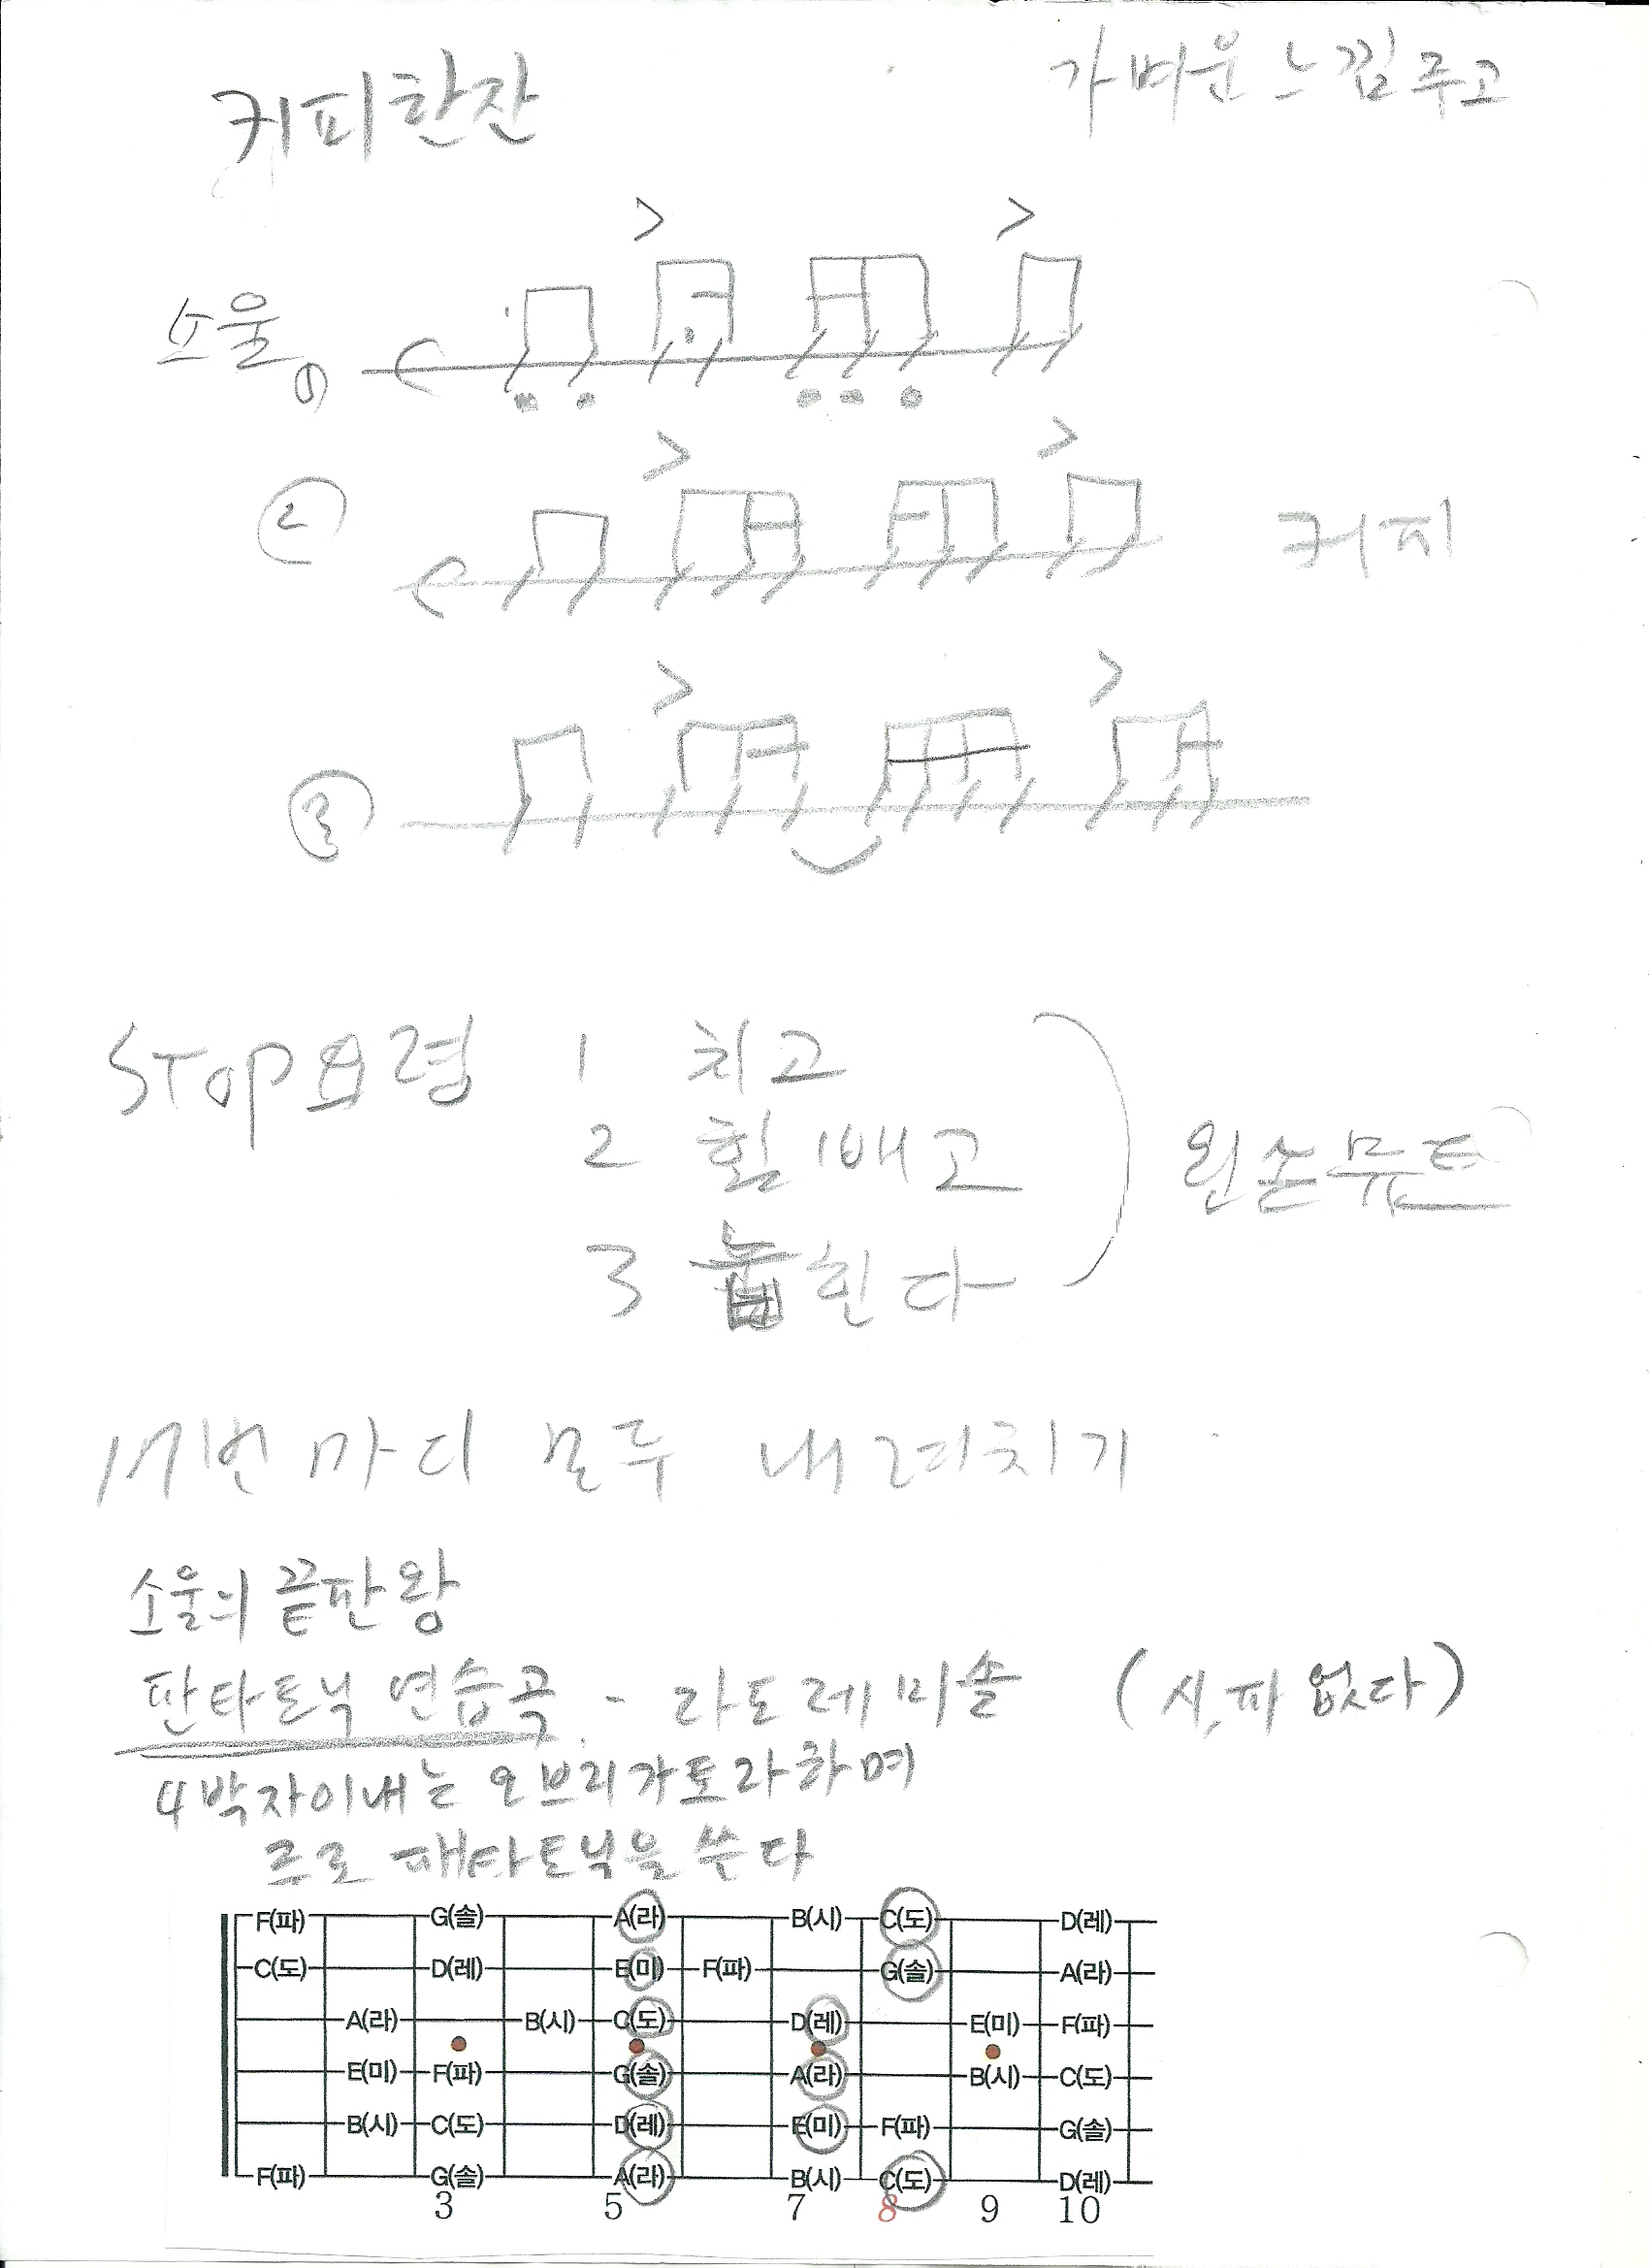 커피한잔
가벼운 느낌 주고
소울 ①
②
커피
③
STOP요령 1 치고
2 힘빼고
3 눕힌다
왼손뮤트
세번 마디 모두 내려치기
소울의 끝판왕
판타토닉 연습곡 - 라도레미솔 (시,파 없다)
4박자이내는 오브리가토라하며
주로 패타토닉을 쓴다
F(파) G(솔) A(라) B(시) C(도) D(레)
C(도) D(레) E(미) F(파) G(솔) A(라)
A(라) B(시) C(도) D(레) E(미) F(파)
E(미) F(파) G(솔) A(라) B(시) C(도)
B(시) C(도) D(레) E(미) F(파) G(솔)
F(파) G(솔) A(라) B(시) C(도) D(레)
3 5 7 8 9 10